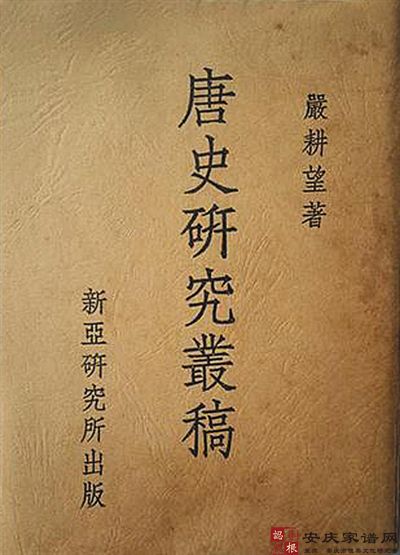 嚴耕望著
唐史研究叢稿
新亞研究所出版
安庆家谱网